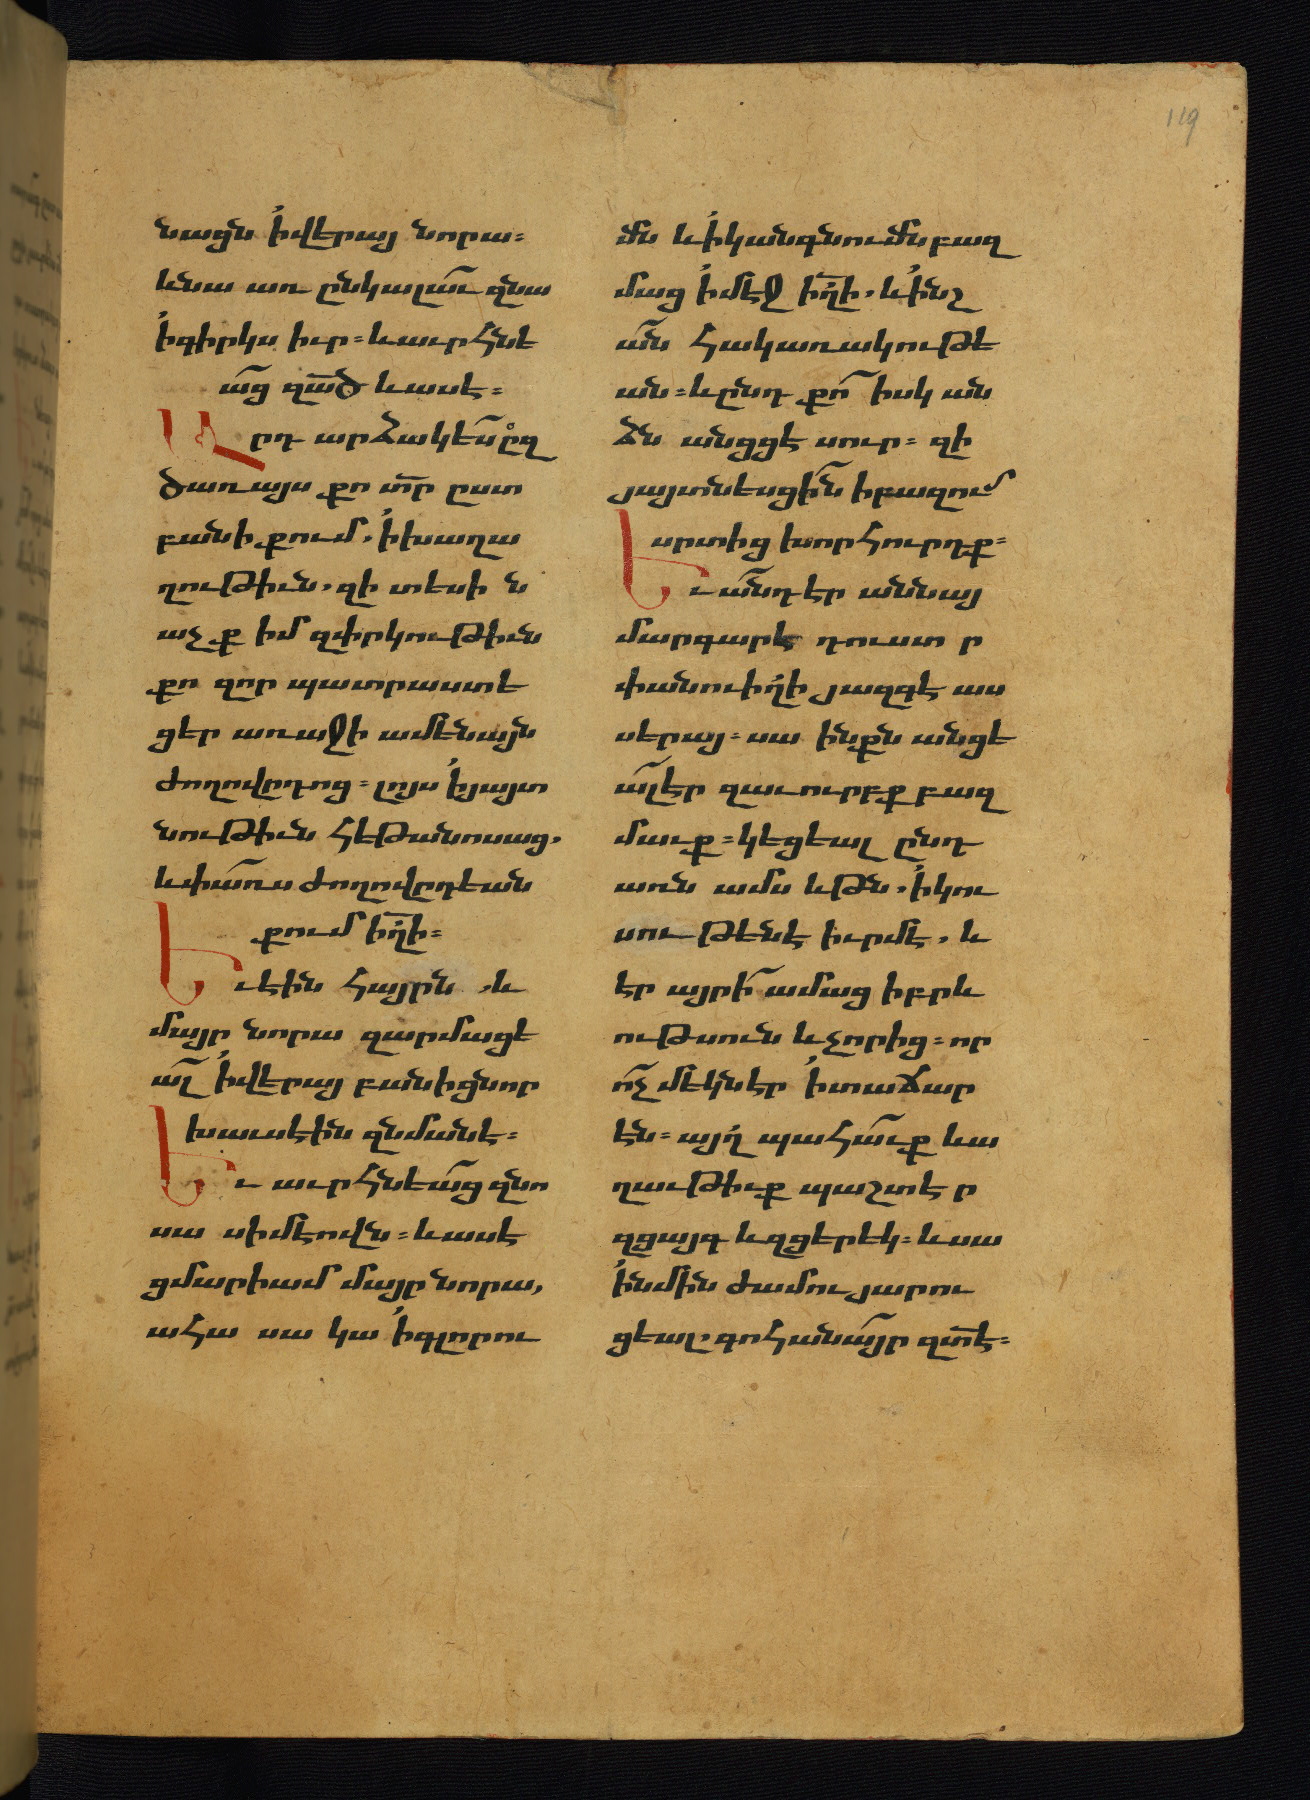 119
նացն ի վերայ նորա։
և նա առ ընկալա՟ւ զնա
ի գիրկս իւր։ և աւրհնե
ա՟ց զա՟ծ և ասէ։
Արդ արձակե՟ս զ
ծառայս քո տ՟ր ըստ
բանի քում, ի խաղա
ղութիւն, զի տեսին
աչք իմ զփրկութիւն
քո զոր պատրաստե
ցեր առաջի ամենայն
ժողովրդոց։ լոյս ի յայտ
նութիւն հեթանոսաց,
և փա՟ռս ժողովրդեան
քում ի՟ղի։
Եւ էին հայրն, և
մայր նորա զարմացե
ա՟լ ի վերայ բանիցն որ
խաւսէին զնմանէ։
Եւ աւրհնեա՟ց զնո
սա սիմէովն։ և ասէ
ցմարիամ մայր նորա,
ահա սա կա ի գլորու
մն և ի կանգնումն բազ
մաց ի մէջ ի՟ղի, և ի նշ
ա՟ն հակառակութե
ան։ և ընդ քո՟ իսկ ան
ձն անցցէ սուր։ զի
յայտնեսցի՟ն ի բազում
սրտից խորհուրդք։
Եւ ա՟նդ էր աննայ
մարգարէ դուստր
փանուի՟ղի յազգէ աս
սերայ։ սա ինքն անցե
ա՟լ էր զաւուրբք բազ
մաւք։ կեցեալ ընդ
առն ամս և թն, ի կու
սութենէ իւրմէ, և
էր այրի՟ ամաց իբրև
ութսուն և չորից։ որ
ո՟չ մեկնէր ի տաճար
էն։ այ՟ղ պահա՟ւք և ա
ղաւթիւք պաշտէր
զցայգ և զցերեկ։ և սա
ի նմին ժամու յարու
ցեալ, գոհանա՟յր զտ՟է։